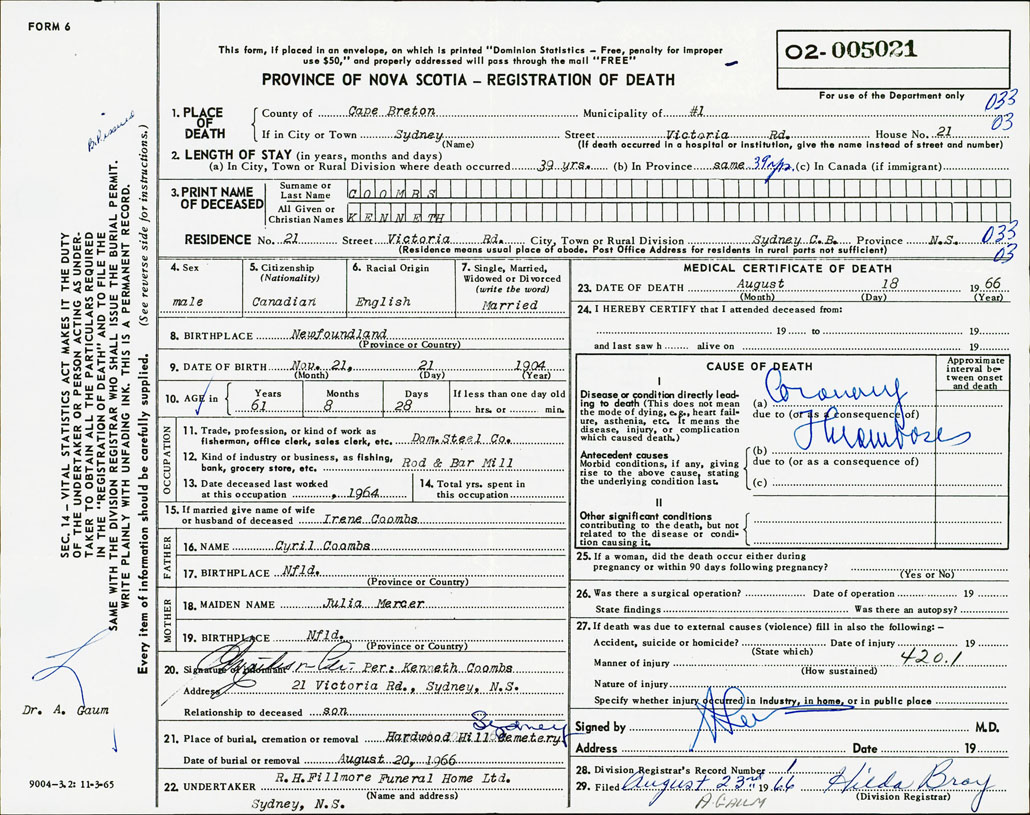 FORM 6
This form, if placed in an envelope, on which is printed "Dominion Statistics – Free, penalty for improper
use $50," and properly addressed will pass through the mail "FREE"
PROVINCE OF NOVA SCOTIA – REGISTRATION OF DEATH
02-005021
For use of the Department only
033
03
1. PLACE OF DEATH County of Cape Breton Municipality of #1
If in City or Town Sydney Street Victoria Rd. House No. 21
(Name) (If death occurred in a hospital or institution, give the name instead of street and number)
2. LENGTH OF STAY (in years, months and days)
(a) In City, Town or Rural Division where death occurred 39 yrs. (b) In Province same 39 yrs. (c) In Canada (if immigrant)
3. PRINT NAME OF DECEASED Surname or Last Name COOMBS
All Given or Christian Names KENNETH
RESIDENCE No. 21 Street Victoria Rd. City, Town or Rural Division Sydney C.B. Province N.S. 033
(Residence means usual place of abode. Post Office Address for residents in rural parts not sufficient) 03
4. Sex male
5. Citizenship (Nationality) Canadian
6. Racial Origin English
7. Single, Married, Widowed or Divorced (write the word) Married
8. BIRTHPLACE Newfoundland
(Province or Country)
9. DATE OF BIRTH Nov. 21, 21 1904
(Month) (Day) (Year)
10. AGE in Years 61 Months 8 Days 28 If less than one day old hrs. or min.
OCCUPATION
11. Trade, profession, or kind of work as
fisherman, office clerk, sales clerk, etc. Dom. Steel Co.
12. Kind of industry or business, as fishing,
bank, grocery store, etc. Rod & Bar Mill
13. Date deceased last worked
at this occupation , 1964
14. Total yrs. spent in
this occupation
15. If married give name of wife
or husband of deceased Irene Coombs
FATHER
16. NAME Cyril Coombs
17. BIRTHPLACE Nfld.
(Province or Country)
MOTHER
18. MAIDEN NAME Julia Mercer
19. BIRTHPLACE Nfld.
(Province or Country)
20. Signature of Informant Per: Kenneth Coombs
Address 21 Victoria Rd., Sydney, N.S.
Relationship to deceased son
21. Place of burial, cremation or removal Hardwood Hill Cemetery Sydney
Date of burial or removal August 20, 1966
22. UNDERTAKER R.H.Fillmore Funeral Home Ltd.
(Name and address)
Sydney, N.S.
MEDICAL CERTIFICATE OF DEATH
23. DATE OF DEATH August 18 1966
(Month) (Day) (Year)
24. I HEREBY CERTIFY that I attended deceased from:
19 to 19
and last saw h alive on 19
CAUSE OF DEATH
Approximate interval between onset and death
I
Disease or condition directly lead-
ing to death (This does not mean
the mode of dying, e.g., heart fail-
ure, asthenia, etc. It means the
disease, injury, or complication
which caused death.)
(a) Coronary
due to (or as a consequence of)
Thromboses
Antecedent causes
Morbid conditions, if any, giving
rise to the above cause, stating
the underlying condition last.
(b)
due to (or as a consequence of)
(c)
II
Other significant conditions
contributing to the death, but not
related to the disease or condi-
tion causing it.
25. If a woman, did the death occur either during
pregnancy or within 90 days following pregnancy?
(Yes or No)
26. Was there a surgical operation? Date of operation 19
State findings Was there an autopsy?
27. If death was due to external causes (violence) fill in also the following:–
Accident, suicide or homicide? Date of injury 19
(State which)
Manner of injury 420.1
(How sustained)
Nature of injury
Specify whether injury occurred in Industry, in home, or in public place
Signed by M.D.
Address Date 19
28. Division Registrar's Record Number 1
29. Filed August 23rd 1966 Hilda Bray
(Division Registrar)
A. GAUM
SEC. 14 – VITAL STATISTICS ACT MAKES IT THE DUTY
OF THE UNDERTAKER OR PERSON ACTING AS UNDER-
TAKER TO OBTAIN ALL THE PARTICULARS REQUIRED
IN THE "REGISTRATION OF DEATH" AND TO FILE THE
SAME WITH THE DIVISION REGISTRAR WHO SHALL ISSUE THE BURIAL PERMIT.
WRITE PLAINLY WITH UNFADING INK. THIS IS A PERMANENT RECORD.
Every item of information should be carefully supplied. (See reverse side for instructions.)
Dr. A. Gaum
9004-3.2: 11-3-65